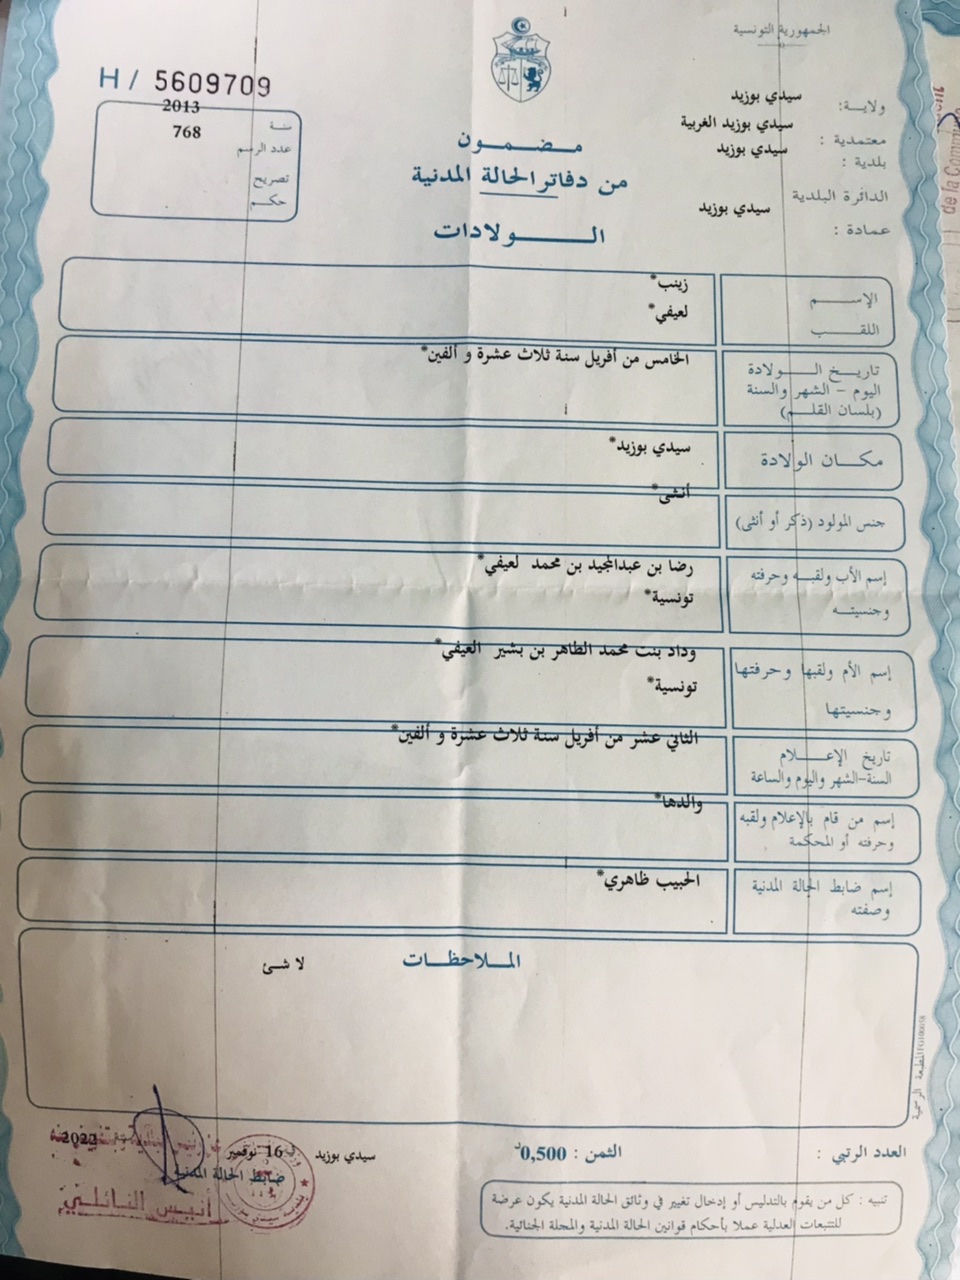 الجمهورية التونسية
H/ 5609709
ولاية: سيدي بوزيد
معتمدية: سيدي بوزيد الغربية
بلدية: سيدي بوزيد
الدائرة البلدية
عمادة: سيدي بوزيد
سنة 2013
عدد الرسم 768
تصريح
حكم
مضمون
من دفاتر الحالة المدنية
الولادات
الإسم زينب*
اللقب لعيفي*
تاريخ الولادة الخامس من أفريل سنة ثلاث عشرة و ألفين*
اليوم - الشهر والسنة
(بلسان القلم)
مكان الولادة سيدي بوزيد*
جنس المولود (ذكر أو أنثى) أنثى*
إسم الأب ولقبه وحرفته رضا بن عبدالمجيد بن محمد لعيفي*
وجنسيته تونسية*
إسم الأم ولقبها وحرفتها وداد بنت محمد الطاهر بن بشير العيفي*
وجنسيتها تونسية*
تاريخ الإعلام الثاني عشر من أفريل سنة ثلاث عشرة و ألفين*
السنة-الشهر واليوم والساعة
إسم من قام بالإعلام ولقبه والدها*
وحرفته أو المحكمة
إسم ضابط الحالة المدنية الحبيب ظاهري*
وصفته
الملاحظات
لا شئ
المطبعة الرسمية
العدد الرتبي :
الثمن : 0,500د
سيدي بوزيد في 16 نوفمبر 2022
ضابط الحالة المدنية
أنيس النائلي
تنبيه : كل من يقوم بالتدليس أو إدخال تغيير في وثائق الحالة المدنية يكون عرضة
للتتبعات العدلية عملا بأحكام قوانين الحالة المدنية والمجلة الجنائية.
de la Commune